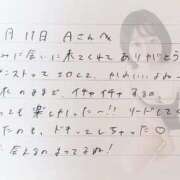 月17日 Aさんへ
みに会いに来てくれて ありがとう
ストってエロくて、かわいいよね
れのままで イチャイチャするの
っても 楽しかった〜!! リードしてく
たのも、ドキッとしちゃった♡
た 会えるのまってるね!